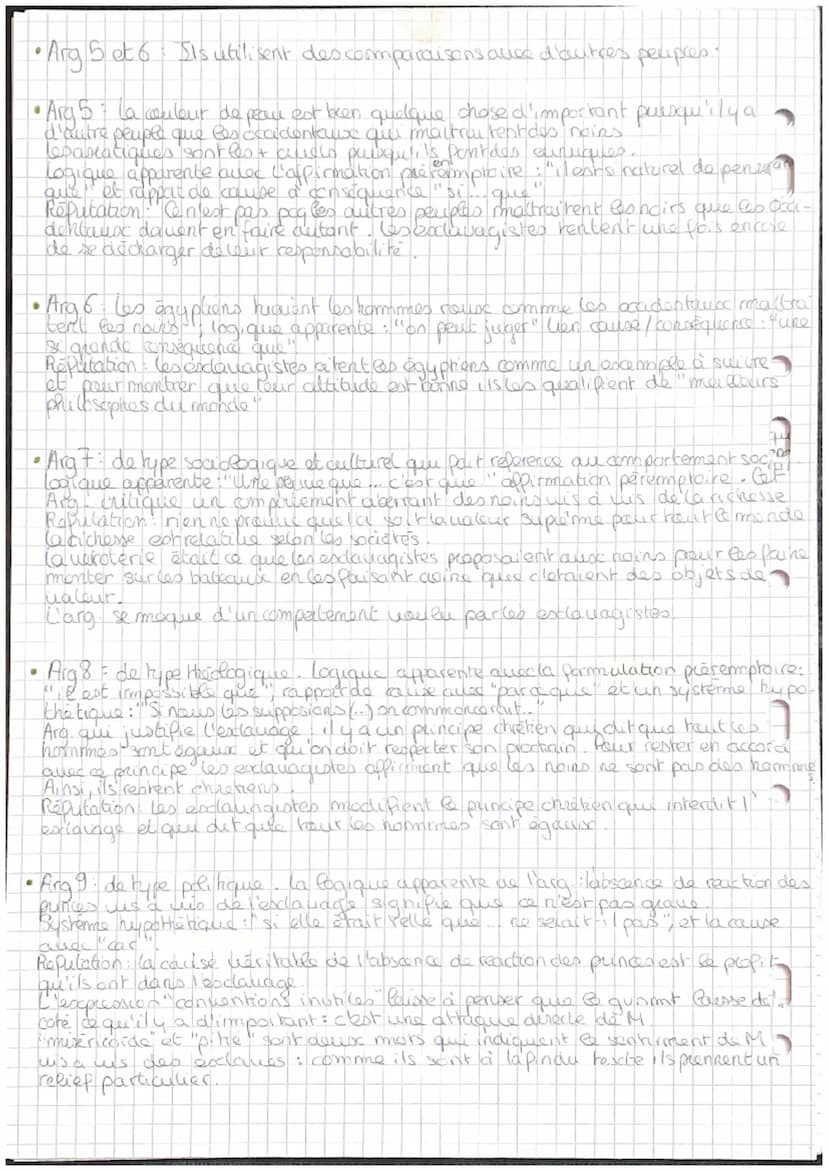 • Arg 5 et 6 : Ils utilisent des comparaisons avec d'autres peuples.
• Arg 5 : la couleur de peau est bien quelque chose d'important puisqu'il y a
d'autre peuple que les occidentaux qui maltraitent des noirs
les asiatiques sont les + cruels puisqu'ils font des eunuques.
Logique apparente avec l'affirmation péremptoire : "il est si naturel de penser
que" et rapport de cause à conséquence "si ... que"
Réfutation : Ce n'est pas pcq les autres peuples maltraitent les noirs que les occi-
dentaux doivent en faire autant. Les esclavagistes tentent une fois encore
de se décharger de leur responsabilité.
• Arg 6 : Les égyptiens tuaient les hommes roux comme les occidentaux maltrai
tent les noirs ; logique apparente : "on peut juger" lien cause/conséquence : "une
si grande conséquence que"
Réfutation : les esclavagistes citent les égyptiens comme un exemple à suivre
et pour montrer que leur attitude est bonne, ils les qualifient de "meilleurs
philosophes du monde"
• Arg 7 : de type sociologique et culturel qui fait référence au comportement social
logique apparente : "Une preuve que ... c'est que" affirmation péremptoire.
Arg. critique un comportement aberrant des noirs vis à vis de la richesse
Réfutation : rien ne prouve que l'or soit la valeur suprême pour tout le monde
la richesse est relative selon les sociétés.
La verroterie était ce que les esclavagistes proposaient aux noirs pour les faire
monter sur les bateaux en les faisant croire que c'étaient des objets de
valeur.
L'arg. se moque d'un comportement voulu par les esclavagistes
• Arg 8 : de type théologique. Logique apparente avec la formulation péremptoire :
"il est impossible que", rapport de cause avec "parce que" et un système hypo-
thétique : "Si nous les supposions (...) on commencerait..."
Arg. qui justifie l'esclavage, il y a un principe chrétien qui dit que tout les
hommes sont égaux et qu'on doit respecter son prochain. Pour rester en accord
avec ce principe les esclavagistes affirment que les noirs ne sont pas des hommes
Ainsi, ils restent chrétiens.
Réfutation : les esclavagistes modifient le principe chrétien qui interdit l'
esclavage et qui dit que tous les hommes sont égaux.
• Arg 9 : de type politique. La logique apparente de l'arg. : l'abscence de reaction des
princes vis à vis de l'esclavage signifie que ce n'est pas grave.
Système hypothétique : "si elle était telle que ... ne serait-il pas", et la cause
avec "car".
Réfutation : la cause véritable de l'abscence de reaction des princes est le profit
qu'ils ont dans l'esclavage.
L'expression "conventions inutiles" laisse à penser que le laisse de
coté ce qu'il y a d'important : c'est une attaque directe de M
"miséricorde" et "pitié" sont deux mots qui indiquent le sentiment de M
vis à vis des esclaves : comme ils sont à la fin du texte ils prennent un
relief particulier.